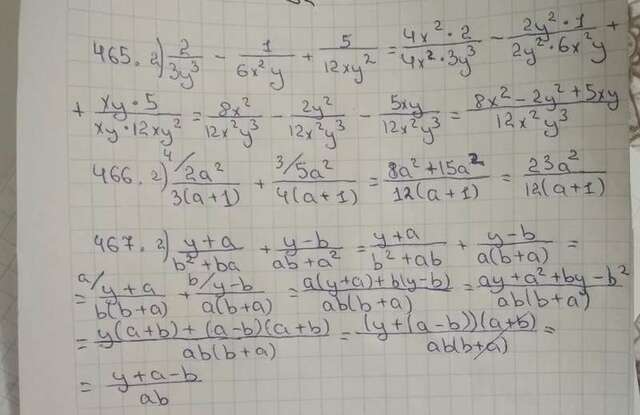 465. г) 2/(3y³) - 1/(6x²y) + 5/(12xy²) = (4x²·2)/(4x²·3y³) - (2y²·1)/(2y²·6x²y) +
+ (xy·5)/(xy·12xy²) = 8x²/(12x²y³) - 2y²/(12x²y³) - 5xy/(12x²y³) = (8x²-2y²+5xy)/(12x²y³)
466. г) ⁴/ 2a²/(3(a+1)) + ³/ 5a²/(4(a+1)) = (8a²+15a²)/(12(a+1)) = 23a²/(12(a+1))
467. г) (y+a)/(b²+ba) + (y-b)/(ab+a²) = (y+a)/(b²+ab) + (y-b)/(a(b+a)) =
= ᵃ/ (y+a)/(b(b+a)) + ᵇ/ (y-b)/(a(b+a)) = (a(y+a)+b(y-b))/(ab(b+a)) = (ay+a²+by-b²)/(ab(b+a))
= (y(a+b)+(a-b)(a+b))/(ab(b+a)) = ((y+(a-b))(a+b))/(ab(b+a)) =
= (y+a-b)/(ab)